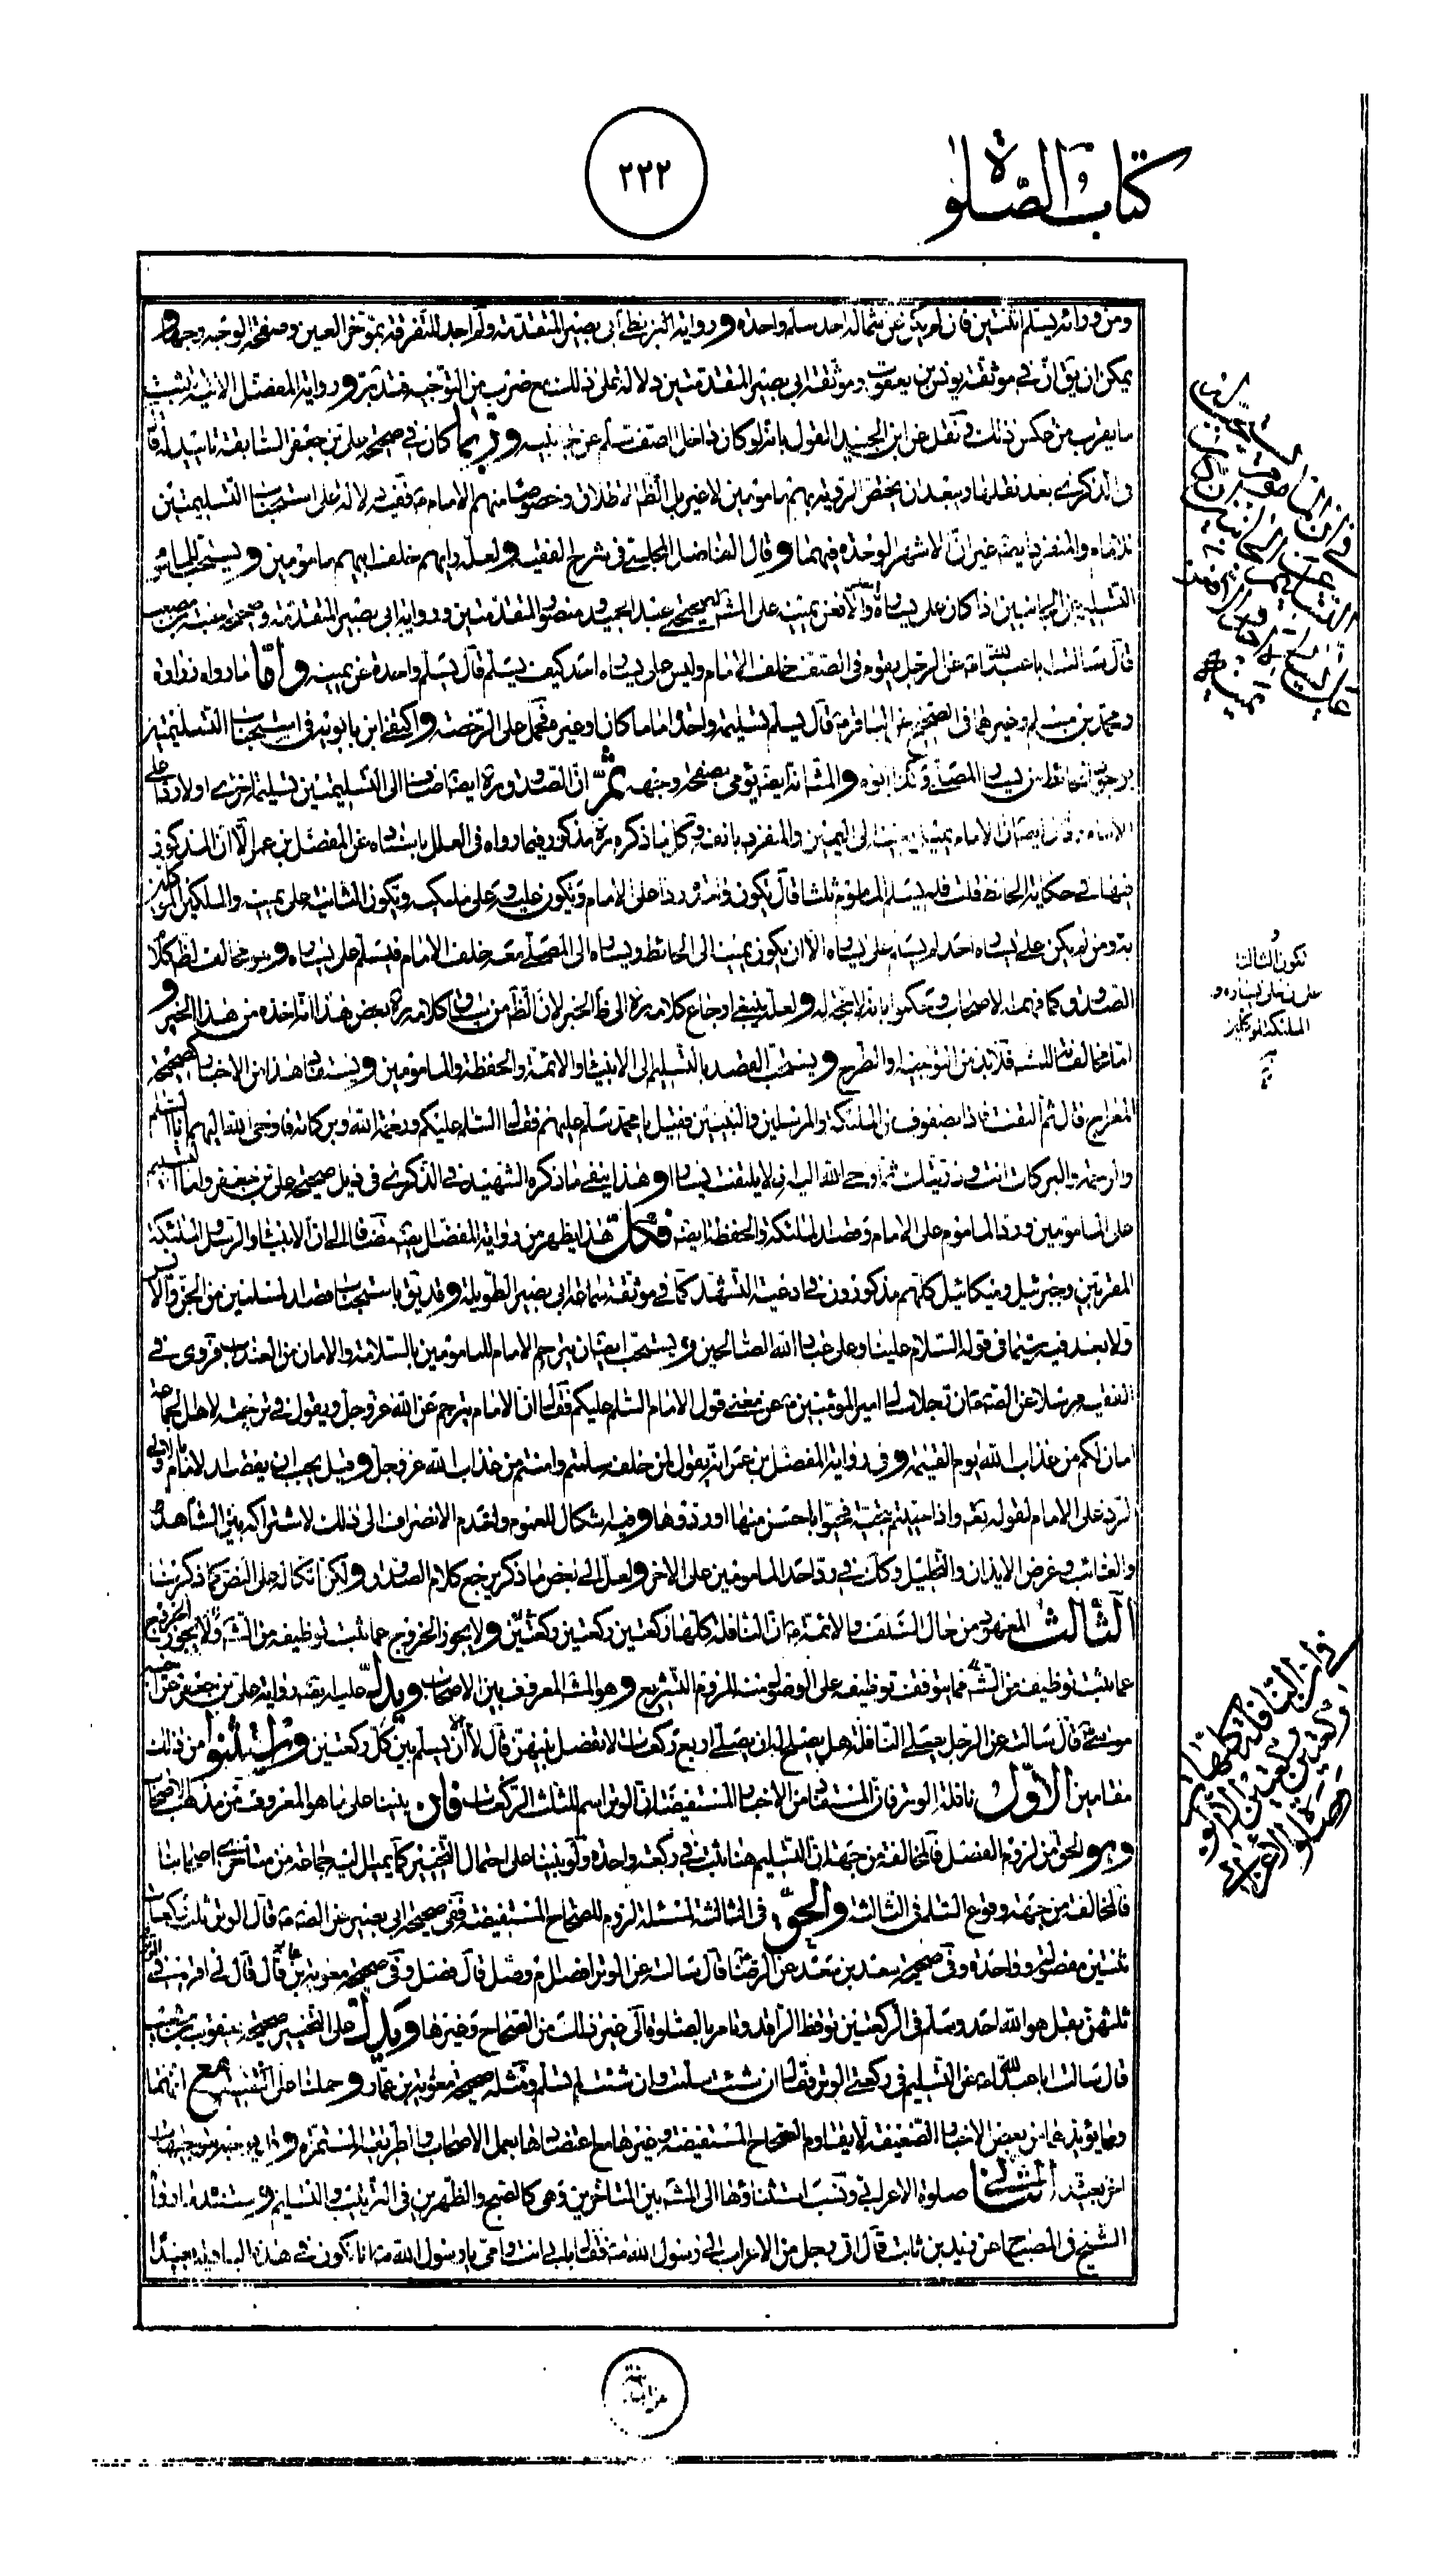 كتاب الصلوة
٢٢٢
ومن ورائه يسلم اثنتين فان لم يكن عن شماله احد سلم واحدة ورواية البزنطي أبي بصير المتقدمة ولم اجد للتفرقة بمؤخر العين وصفحة الوجه وجها و
يمكن ان يق ان في موثقة يونس بن يعقوب وموثقة ابي بصير المتقدمتين دلالة على ذلك مع ضرب من التوجيه فتدبر ورواية المفضل الاتية يثبت
ما يقرب من عكس ذلك ونقل عن ابن الجنيد القول بانه لو كان داخل الصف سلم عن جانبيه وربما كان في صحيحة علي بن جعفر السابقة تاييد له قال
في الذكرى بعد نقلها ويبعد ان يختص الرؤية بهم مامومين لا غير بل الظ الاطلاق وخصوصا منهم الامام ع ففيه دلالة على استحباب التسليمتين
للامام والمنفرد ايضه غير ان الاشهر الوحدة فيهما وقال الفاضل المجلسي في شرح الفقيه ولعله رايهم خلف ابيهم مامومين ويستحب للماموم
التسليم عن الجانبين اذا كان على يساره والا فعن يمينه على المشه لصحيحتي عبد الحميد ومنصور المتقدمتين ورواية ابي بصير المتقدمة وصحيحة عنبسة بن مصعب
قال سالت ابا عبد الله ع عن الرجل يقوم في الصف خلف الامام وليس على يساره احد كيف يسلم قال يسلم واحدة عن يمينه واما ما رواه زرارة
ومحمد بن مسلم وغيرهما في الصحيح عن الباقر ع قال يسلم تسليمة واحدة اماما كان او غيره فمحمل على الرخصة واكتفى ابن بابويه في استحباب التسليمتين
بوجود الحائط عن يسار المصلي وكذا ابنه والمشه انه ايضه يومي بصفحة وجهه ثم ان الصدوق ره ايضه اضاف الى التسليمتين تسليما اخرى اولا ردا على
الامام وقال ايضه ان الامام يميل بعينه الى اليمين والمنفرد بانفه وكل ما ذكره ره مذكور فيما رواه في العلل باسناده عن المفضل بن عمر الا ان المذكور
فيها في حكاية الحائط قلت فلم يسلم الماموم ثلثا قال تكون واحدة ردا على الامام وتكون عليه وعلى ملكيه وتكون الثانية على يمينه والملكين الموكلين
به ومن لم يكن على يساره احد لم يسلم على يساره الا ان يكون يمينه الى الحائط ويساره الى المصلي معه خلف الامام فيسلم على يساره وهو مخالف لظ كلام
الصدوق كما فهمه الاصحاب وحكموا بانه لا حجة له ولعله ينبغي ارجاع كلامه ره الى ظ الخبر لان الظ من سياق كلامه ره بعض هذا انه اخذه من هذا الخبر و
اما مخالفته للمشه فلا بد من التوجيه او الطرح ويستحب القصد بالتسليم الى الانبياء والائمة والحفظة والمامومين ويستفاد هذا من الاخبار كصحيحة
المعراج قال ثم التفت فاذا بصفوف من الملئكة والمرسلين والنبيين فقيل يا محمد سلم عليهم فقال السلام عليكم ورحمة الله وبركاته فاوحى الله اليه انا السلام
والرحمة والبركات انت وذريتك ثم اوحى الله اليه ان لا يلتفت يسارا وهذا ينفي ما ذكره الشهيد في الذكرى في ذيل صحيحة علي بن جعفر واما التسليم
على المامومين ورد الماموم على الامام وقصد الملئكة والحفظة ايضه فكل هذا يظهر من رواية المفضل ايضه مضافا الى ان الانبياء والرسل والملئكة
المقربين وجبرئيل وميكائيل كلهم مذكورون في ادعية التشهد كما في موثقة سماعة ابي بصير الطويلة وقد يق باستحباب قصد المسلمين من الجن والانس
ولا بعد فيه سيما في قوله السلام علينا وعلى عباد الله الصالحين ويستحب ايضا ان يترجم الامام للمامومين بالسلامة والامان من العذاب فروى في
الفقيه مرسلا عن الصه ع ان رجلا سال امير المؤمنين ع عن معنى قول الامام السلم عليكم فقال ان الامام يترجم عن الله عز وجل ويقول في ترجمته لاهل الجماعة
امان لكم من عذاب الله يوم القيمة وفي رواية المفضل بن عمر انه يقول لمن خلفه سلمتم وامنتم من عذاب الله عز وجل وقيل يجب ان يقصد الامام بالاولى
الرد على الامام لقوله تعه واذا حييتم بتحية فحيوا باحسن منها او ردوها وفيه اشكال للعموم ولعدم الانصراف الى ذلك لاشتراكه بين الشاهد
والغائب وغرض الايذان والتحليل وكك في رد احد المامومين على الاخر ولعل الى بعض ما ذكر يرجع كلام الصدوق ولكن اتكاله على النص كما ذكرنا
الثالث المعهود من حال السلف والائمة ع ان النافلة كلها ركعتين ركعتين ركعتين ولا يجوز الخروج عما ثبت توظيفه من الشه ولا يجوز الخروج
عما يثبت توظيفه من الشه مما يتوقف توظيفه على الوصول منه للزوم التشريع وهو المشه المعروف بين الاصحاب ويدل عليه ايضه رواية علي بن جعفر عن اخيه
موسى ع قال سالت عن الرجل يصلي النافلة هل يصلح له ان يصلي اربع ركعات لا تفصل بينهن قال لا الا ان يسلم بين كل ركعتين واستثنوا من ذلك
مقامين الاول نافلة الوتر فان المستفاد من الاخبار المستفيضة ان الوتر اسم للثلث الركعات فان بنينا على ما هو المعروف من مذهب الاصحاب
وهو الحق من لزوم الفصل فالمخالفة من جهة ان التسليم هنا يثبت في ركعة واحدة ولو بنينا على احتمال التخيير كما يميل اليه جماعة من متاخري اصحابنا
فالمخالفة من جهة وقوع السلم في الثالثة والحق في الثالثة المسئلة لزوم للصحاح المستفيضة ففي صحيحة ابي بصير عن الصه ع قال الوتر ثلث ركعات
ثنتين مفصولة وواحدة وفي صحيحة سعد بن سعد عن الرضا ع قال سالته عن الوتر افصل ام وصل قال فصل وفي صحيحة معوية بن عمار قال قال لي اقرء في الوتر
ثلثهن بقل هو الله احد وسلم في الركعتين توقظ الراقد وتامر بالصلوة الى غير ذلك من الصحاح وغيرها ويدل على التخيير صحيحة يعقوب بن شعيب
قال سالت ابا عبد الله ع عن التسليم في ركعتي الوتر فقال ان شئت سلمت وان شئت لم تسلم ومثله صحيحة معوية بن عمار وحملتا على التقية مع انهما
وما يؤيدهما من بعض الاخبار الضعيفة لا يقاوم الصحاح المستفيضة وغيرها مع اعتضادها بعمل الاصحاب والطريقة المستمرة
اخر بعيدة الثاني صلوة الاعرابي ونسب استثناؤها الى المشه بين المتاخرين وهي كالصبح والظهرين في الترتيب والتسليم ومستنده ما رواه
الشيخ في المصباح عن زيد بن ثابت قال اتى رجل من الاعراب الى رسول الله ص فقال بابي انت وامي يا رسول الله ص انا نكون في هذه البادية بعيدا
في ان الماموم يستحب له
التسليم عن الجانبين ان كان
على يساره احد والا فعن
يمينه
و
تكون الثالثة
على من على يساره و
الملئكة الموكلين
به
في ان النافلة كلها
ركعتين ركعتين الا الوتر
وصلوة الاعرابي